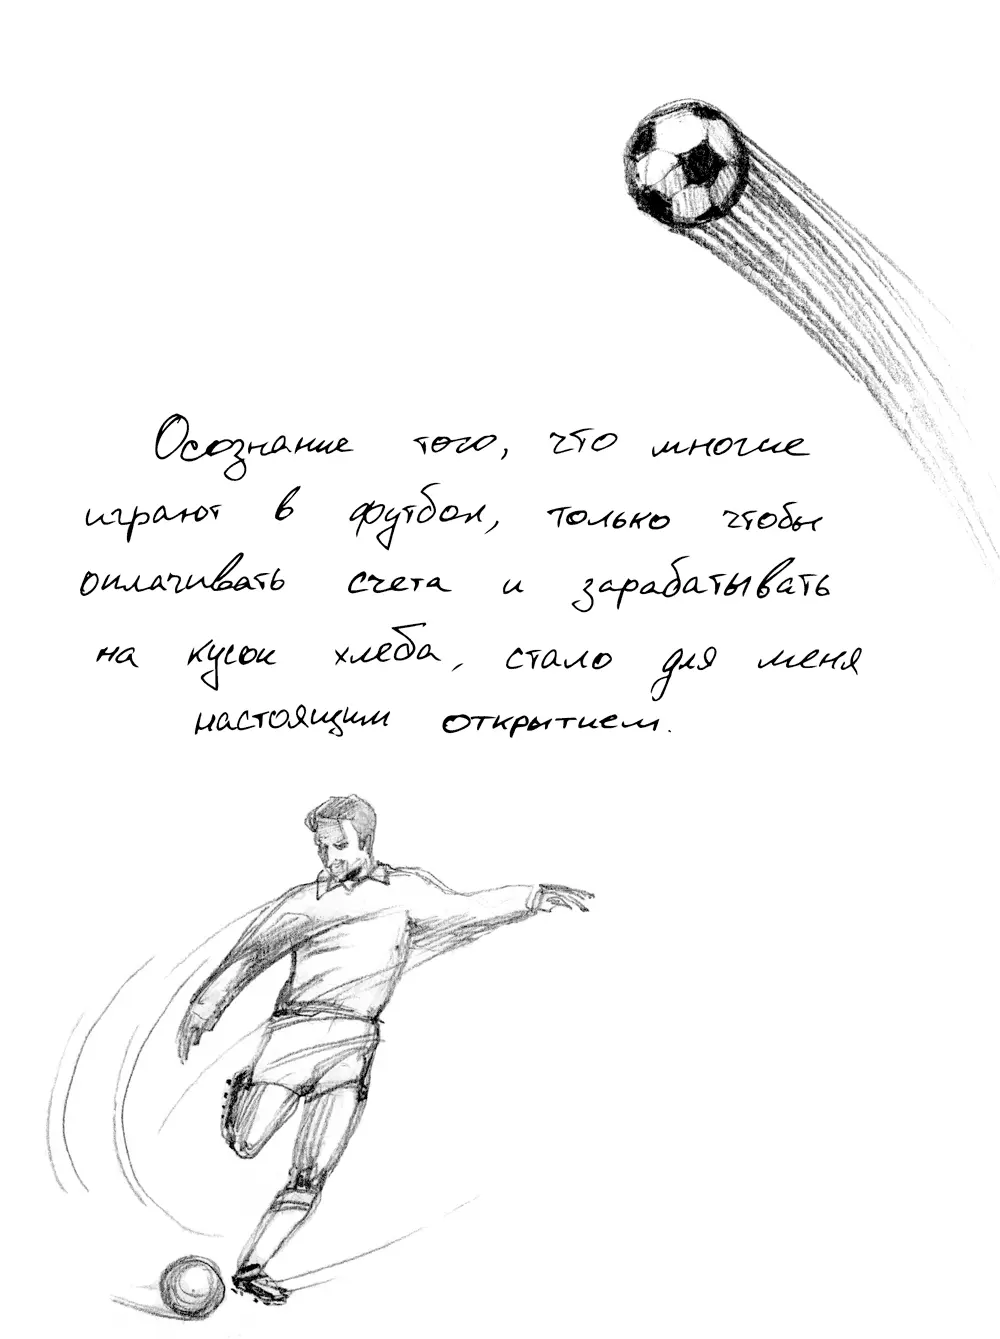 Осознание того, что многие
играют в футбол, только чтобы
оплачивать счета и зарабатывать
на кусок хлеба, стало для меня
настоящим открытием.